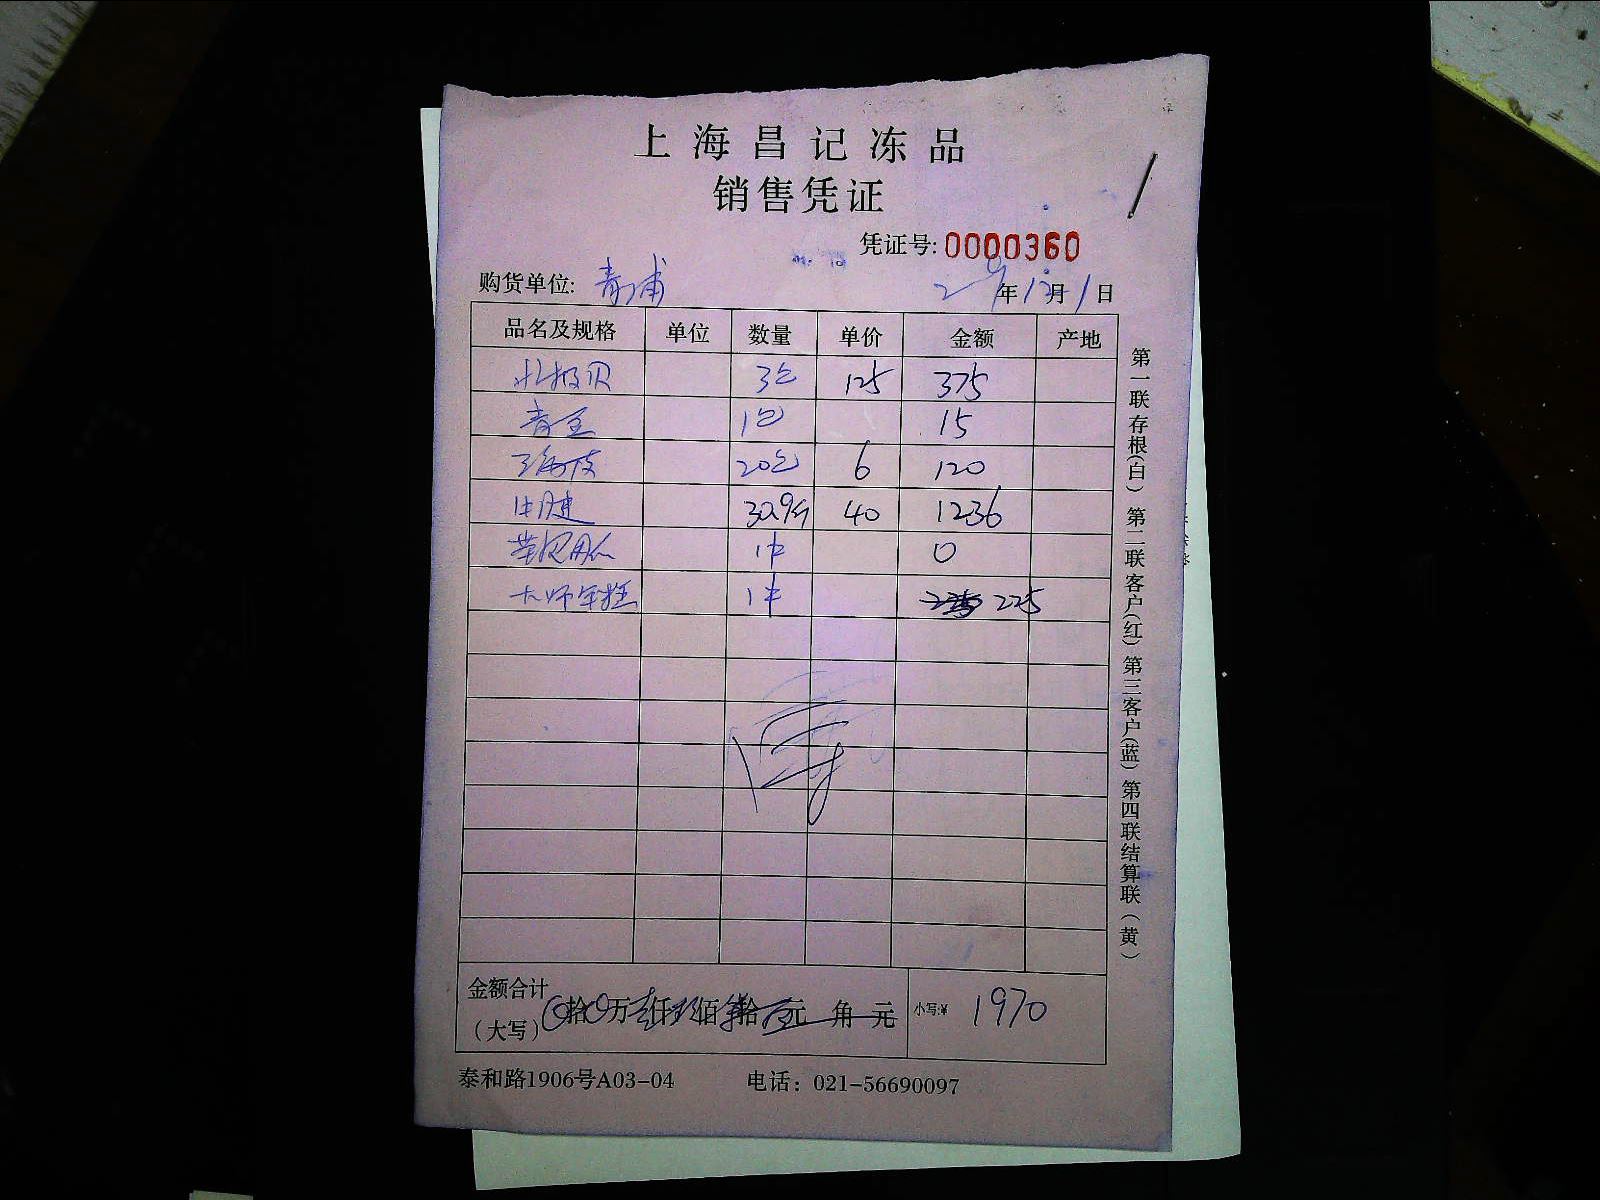 上海昌记冻品
销售凭证
凭证号: 0000360
购货单位: 青浦 年12月1日
品名及规格 单位 数量 单价 金额 产地
北极贝 3包 125 375
青豆 1包 15
20包 6 120
牛腱 30.9斤 40 1236
1件 0
大师年糕 1件 225
金额合计
(大写) 拾 万 仟 佰 拾 元 角 元 小写:¥ 1970
泰和路1906号A03-04 电话：021-56690097
第一联存根(白) 第二联客户(红) 第三客户(蓝) 第四联结算联(黄)